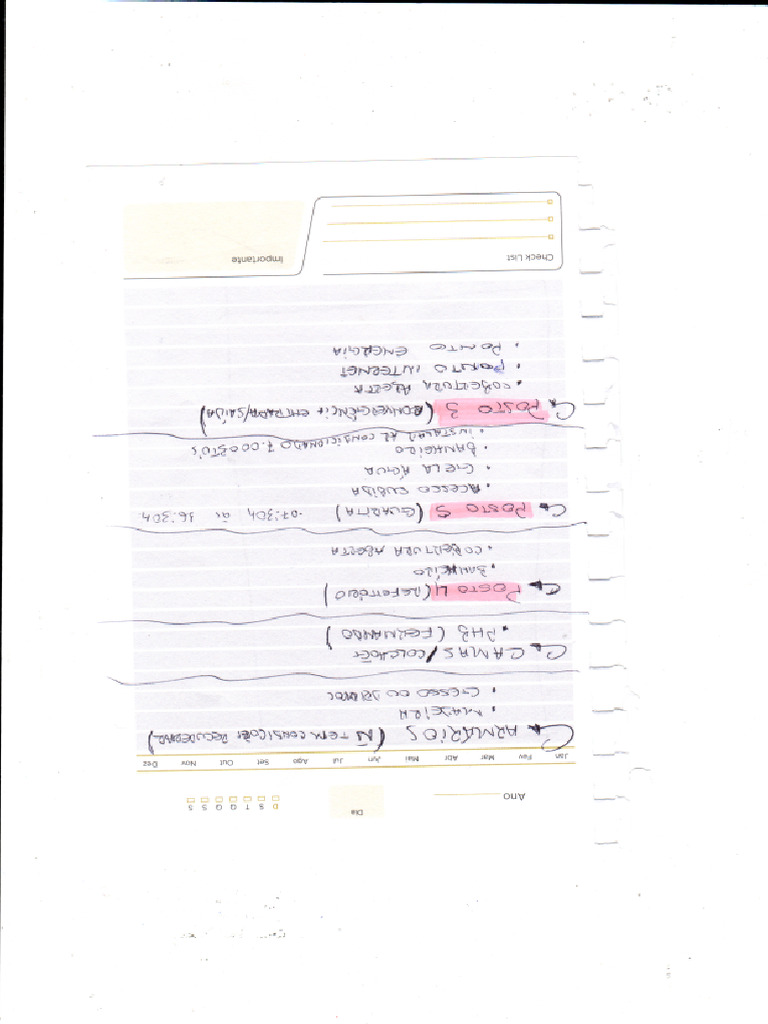 Ano
Dia
D S T Q Q S S
Jan Fev Mar Abr Mai Jun Jul Ago Set Out Nov Dez
ARMÁRIOS (Ñ TEM CONDIÇÕES RECUPERAR)
• MADEIRA
• GESSO
CAMAS/COLCHÕES
• PHB (FERNANDO)
POSTO 4 (REFEITÓRIO)
• BANHEIRO
• COBERTURA ABERTA
POSTO 5 (GUARITA) • 07:30H às 16:30H
• ACESSO SUBIDA
• GELA ÁGUA
• BANHEIRO
• INSTALAR AR CONDICIONADO 7.000 BTU'S
POSTO 3 (CONVERGÊNCIA ENTRADA/SAÍDA)
• COBERTURA ABERTA
• PONTO INTERNET
• PONTO ENERGIA
Check List
Importante